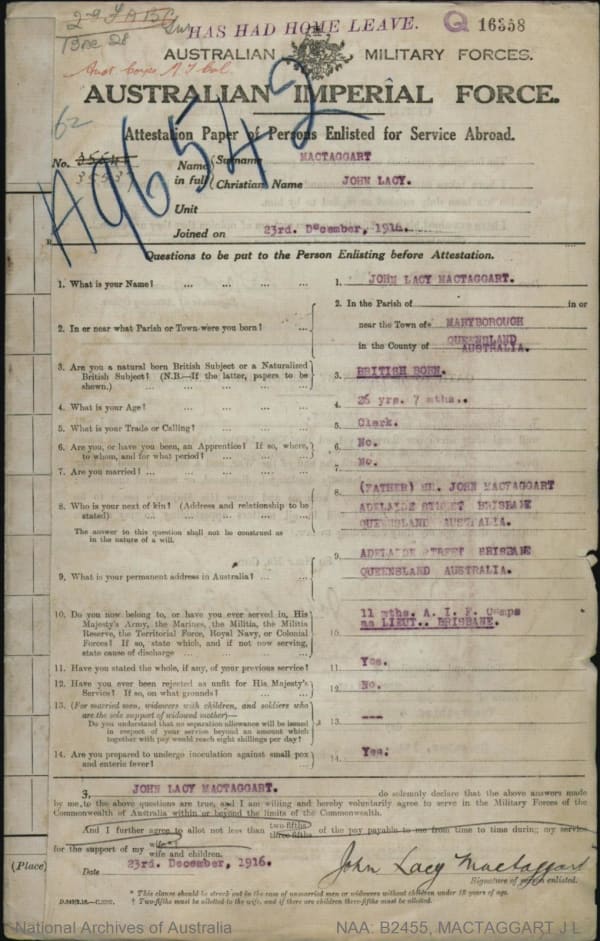 2nd
HAS HAD HOME LEAVE.
Q 16358
AUSTRALIAN MILITARY FORCES.
Aust Corps
AUSTRALIAN IMPERIAL FORCE.
62
A96542
Attestation Paper of Persons Enlisted for Service Abroad.
No. Name in full { Surname MACTAGGART
Christian Name JOHN LACY.
Unit
Joined on 23rd. December, 1916.
Questions to be put to the Person Enlisting before Attestation.
1. What is your Name? ... ... ... ... 1. JOHN LACY MACTAGGART.
2. In or near what Parish or Town were you born? ... 2. In the Parish of in or
near the Town of MARYBOROUGH
in the County of QUEENSLAND
AUSTRALIA.
3. Are you a natural born British Subject or a Naturalized
British Subject? (N.B.—If the latter, papers to be
shewn.) ... ... ... ... 3. BRITISH BORN.
4. What is your Age? ... ... ... ... 4. 26 yrs. 7 mths..
5. What is your Trade or Calling? ... ... ... 5. Clerk.
6. Are you, or have you been, an Apprentice? If so, where,
to whom, and for what period? ... ... ... 6. No.
7. Are you married? ... ... ... ... 7. No.
8. Who is your next of kin? (Address and relationship to be
stated) ... ... ... ... 8. (FATHER) MR. JOHN MACTAGGART
ADELAIDE STREET BRISBANE
QUEENSLAND AUSTRALIA.
The answer to this question shall not be construed as
in the nature of a will.
9. What is your permanent address in Australia? ... ... 9. ADELAIDE STREET BRISBANE
QUEENSLAND AUSTRALIA.
10. Do you now belong to, or have you ever served in, His
Majesty's Army, the Marines, the Militia, the Militia
Reserve, the Territorial Force, Royal Navy, or Colonial
Forces? If so, state which, and if not now serving,
state cause of discharge ... ... ... 10. 11 mths. A. I. F. Camps
as LIEUT.. BRISBANE.
11. Have you stated the whole, if any, of your previous service? 11. Yes.
12. Have you ever been rejected as unfit for His Majesty's
Service? If so, on what grounds? ... ... 12. No.
13. (For married men, widowers with children, and soldiers who
are the sole support of widowed mother)—
Do you understand that no separation allowance will be issued
in respect of your service beyond an amount which
together with pay would reach eight shillings per day? 13. ---
14. Are you prepared to undergo inoculation against small pox
and enteric fever? ... ... ... ... 14. Yes.
I, JOHN LACY MACTAGGART. do solemnly declare that the above answers made
by me to the above questions are true, and I am willing and hereby voluntarily agree to serve in the Military Forces of the
Commonwealth of Australia within or beyond the limits of the Commonwealth.
And I further agree to allot not less than two-fifths three-fifths of the pay payable to me from time to time during my service
for the support of my wife wife and children.
(Place)
Date 23rd. December, 1916. John Lacy Mactaggart
Signature of person enlisted.
* This clause should be struck out in the case of unmarried men or widowers without children under 18 years of age.
† Two-fifths must be allotted to the wife, and if there are children three-fifths must be allotted.
National Archives of Australia NAA: B2455, MACTAGGART J L